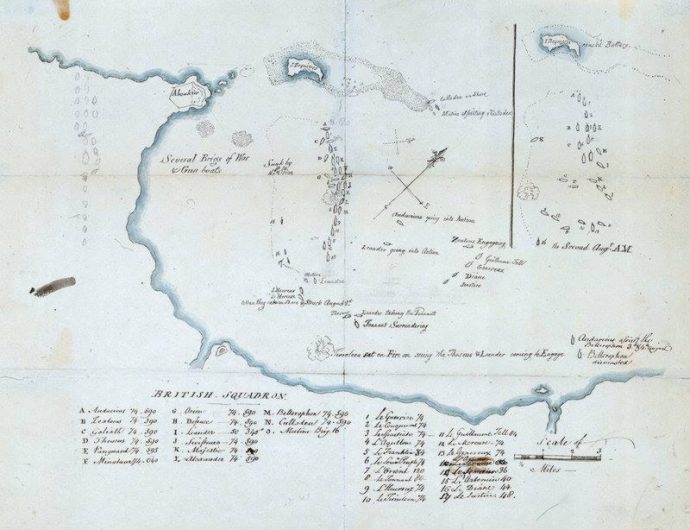 Aboukir
Several Brigs of War
& Gun boats
Sunk by
Culloden on Shore
Mutine assisting Culloden
Audacious going into Action
Leander going into Action
Zealous Engaging
Guillaume Tell
Genereux
Diane
Justice
Mutine
Leander
L'Heureux
& Mercure
When they on Shore August 2d
Theseus
Leander taking the Tonnant
Tonnant Surrendering
Timoleon set on Fire on seeing the Theseus & Leander coming to Engage
the Second Augt. A.M.
Audacious assisting the
Bellerophon
Bellerophon
dismasted
BRITISH SQUADRON
A. Audacious 74 . 590
B. Zealous 74 . 590
C. Goliath 74 . 590
D. Theseus 74 . 590
E. Vanguard 74 . 595
F. Minotaur 74 . 640
G. Orion 74 . 590
H. Defence 74 . 590
I. Leander 50
J. Swiftsure 74 . 590
K. Majestic 74 . 590
L. Alexander 74 . 590
M. Bellerophon 74 . 590
N. Culloden 74 . 590
O. Mutine Brig 16
1 Le Guerrier 74
2 Le Conquerant 74
3 Le Spartiate 74
4 L'Aquilon 74
5 Le Franklin 80
6 Le Souv Peuple 74
7 L'Orient 120
8 Le Tonnant 80
9 L'Heureux 74
10 Le Timoleon 74
11 Le Guillaume Tell 84
12 Le Mercure 74
13 Le Genereux 74
15 L'Artemise 40
16 La Diane 44
17 La Justice 48
Scale of
2 3
Miles